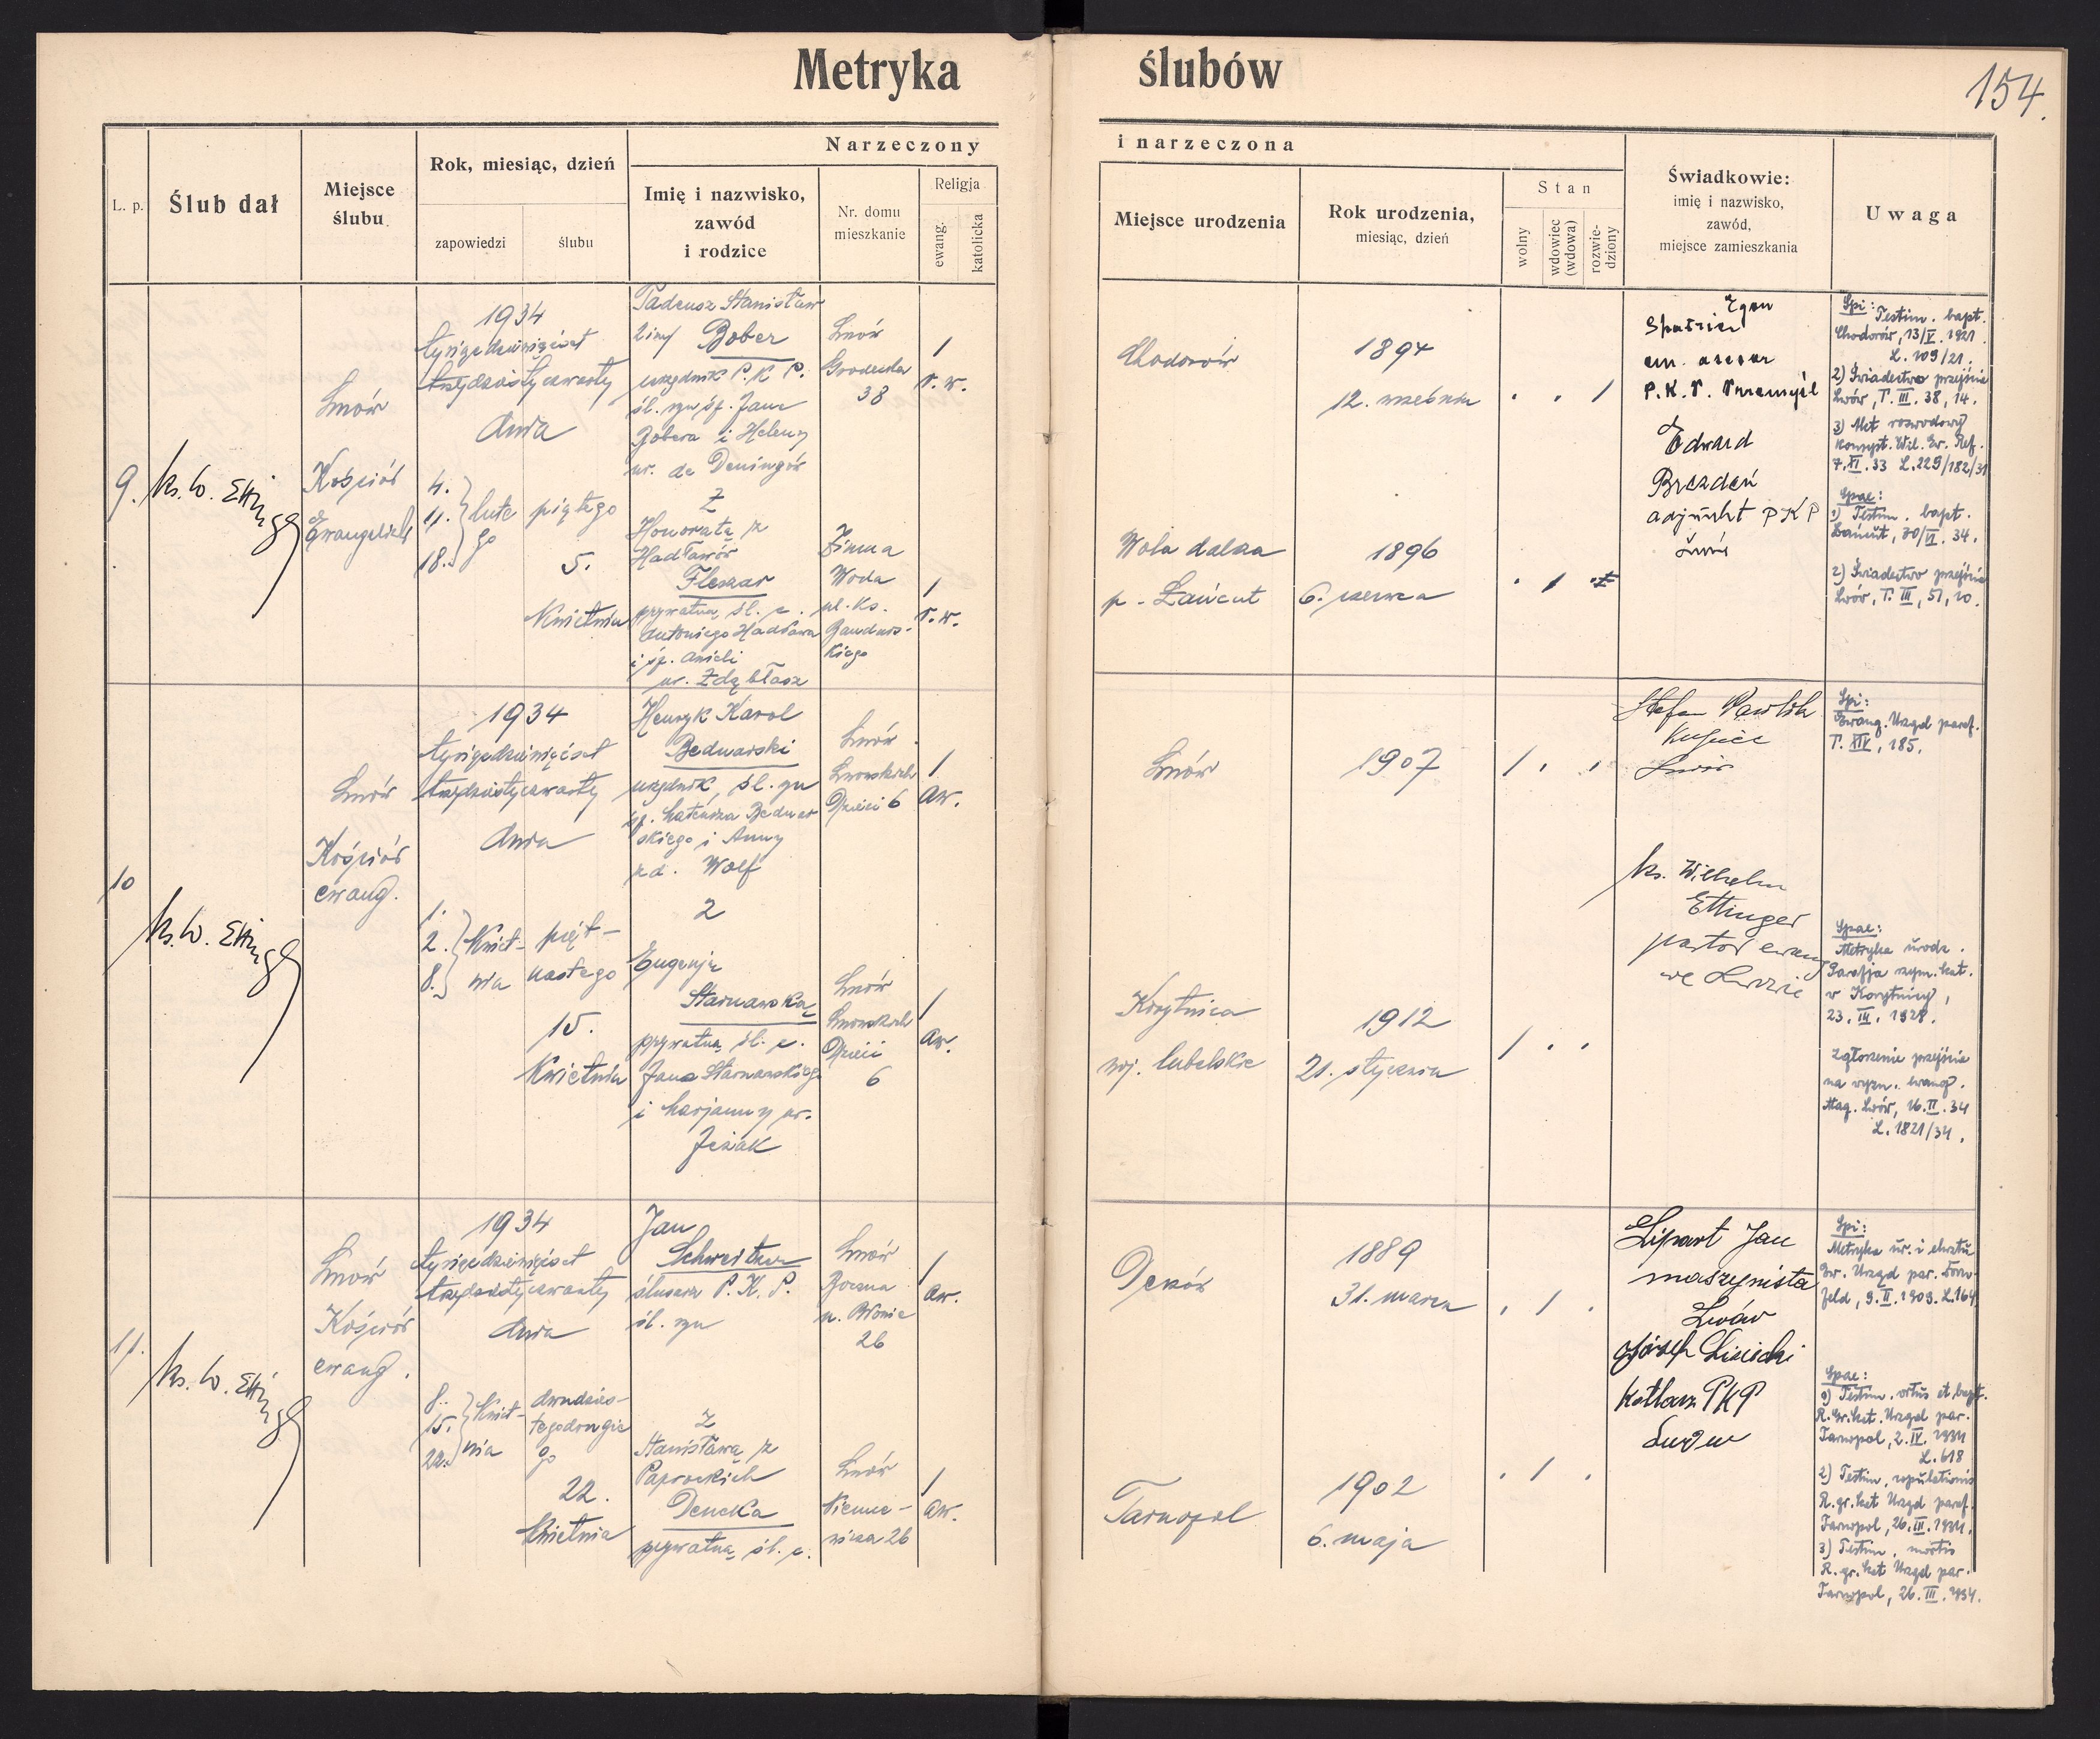 Metryka ślubów
154.
L. p.
Ślub dał
Miejsce
ślubu
Rok, miesiąc, dzień
zapowiedzi
ślubu
Narzeczony
Imię i nazwisko,
zawód
i rodzice
Nr. domu
mieszkanie
Religja
ewang.
katolicka
i narzeczona
Miejsce urodzenia
Rok urodzenia,
miesiąc, dzień
Stan
wolny
wdowiec
(wdowa)
rozwie-
dziony
Świadkowie:
imię i nazwisko,
zawód,
miejsce zamieszkania
Uwaga
9.
ks. W. Etting
Lwów
Kościół
Ewangelicki
1934
tysiącdziewięćset
trzydziestyczwarty
dnia
4.
11.
18.
lute
go
piątego
5.
Kwietnia
Tadeusz Stanisław
2 im/ Bober
urzędnik P. K. P.
śl. syn śp. Jana
Bobera i Heleny
ur. de Deningór
z
Honoratą z
Hadławów
Fleszar
prywatną, śl. c.
Antoniego Hadława
i śp. Anieli
ur. Zdąbłasz
Lwów
Grodecka
38
1
r. w.
Zimna
Woda
ul. Ks.
Bandur-
kiego
1
r. w.
Chodorów
1894
12. września
. . 1
Wola dalsza
p. Łańcut
1896
6. czerwca
. 1
Egon
em. asesor
P. K. P. Przemyśl
Edward
Brezdeń
adjunkt PKP
Lwów
Spi: Testim. bapt.
Chodorów, 13/V. 1921
L. 109/21.
2) Świadectwo przejścia
Lwów, T. III. 38, 14.
3) Akt rozwodowy
Konsyst. Wil. Ew. Ref.
7. XI. 33 L. 229/182/31
Spae:
1) Testim. bapt.
Łańcut, 30/VI. 34.
2) Świadectwo przejścia
Lwów, T. III, 51, 20.
10
ks. W. Etting
Lwów
Kościół
ewang.
1934
tysiącdziewięćset
trzydziestyczwarty
dnia
1.
2.
8.
Kwiet-
nia
pięt-
nastego
15.
Kwietnia
Henryk Karol
Bednarski
urzędnik, śl. syn
śp. Mateusza Bednar
skiego i Anny
zd. Wolf
z
Eugenją
Starnawską
prywatną śl. c.
Jana Starnawskiego
i Marjanny ur.
Jeżak
Lwów
Lwowskich
Dzieci 6
1
aw.
Lwów
Lwowskich
Dzieci
6
1
aw.
Lwów
1907
1 . .
Korytnica
woj. lubelskie
1912
21. stycznia
1 . .
Stefan Pawlik
Kupiec
Lwów
ks. Wilhelm
Ettinger
pastor ewang
we Lwowie
Spi:
Ewang. Urząd paraf.
T. XIV, 185.
Spae:
Metryka urodz.
Parafja rzym. kat.
w Korytnicy,
23. III. 1928.
Zgłoszenie przejścia
na wyzn. ewang.
Mag. Lwów, 16. II. 34
L. 1821/34.
11.
ks. W. Etting
Lwów
Kościół
ewang.
1934
tysiącdziewięćset
trzydziestyczwarty
dnia
8.
15.
22.
Kwiet-
nia
dwudzies-
tegodrugie
go
22.
Kwietnia
Jan
Schweitzer
ślusarz P. K. P.
śl. syn
z
Stanisławą z
Paprockich
Dencka
prywatną śl. c.
Lwów
Boczna
n. Błonie
26
1
aw.
Lwów
Niemce-
wicza 26
1
aw.
1889
31. marca
. 1 .
Tarnopol
1902
6. maja
. 1 .
Lipart Jan
maszynista
Lwów
Józef Lisiecki
Kotlarz PKP
Lwów
Spi:
Metryka ur. i chrztu
Ew. Urząd par. Dorn-
feld, 9. II. 1909. L. 164
Spae:
1) Testim. ortus et bapt.
R. Gr. kat. Urząd par.
Tarnopol, 2. IV. 1934
L. 618
2) Testim. copulationis
R. gr. kat Urząd paraf.
Tarnopol, 26. III. 1934.
3) Testim. mortis
R. gr. kat Urząd par.
Tarnopol, 26. III. 1934.